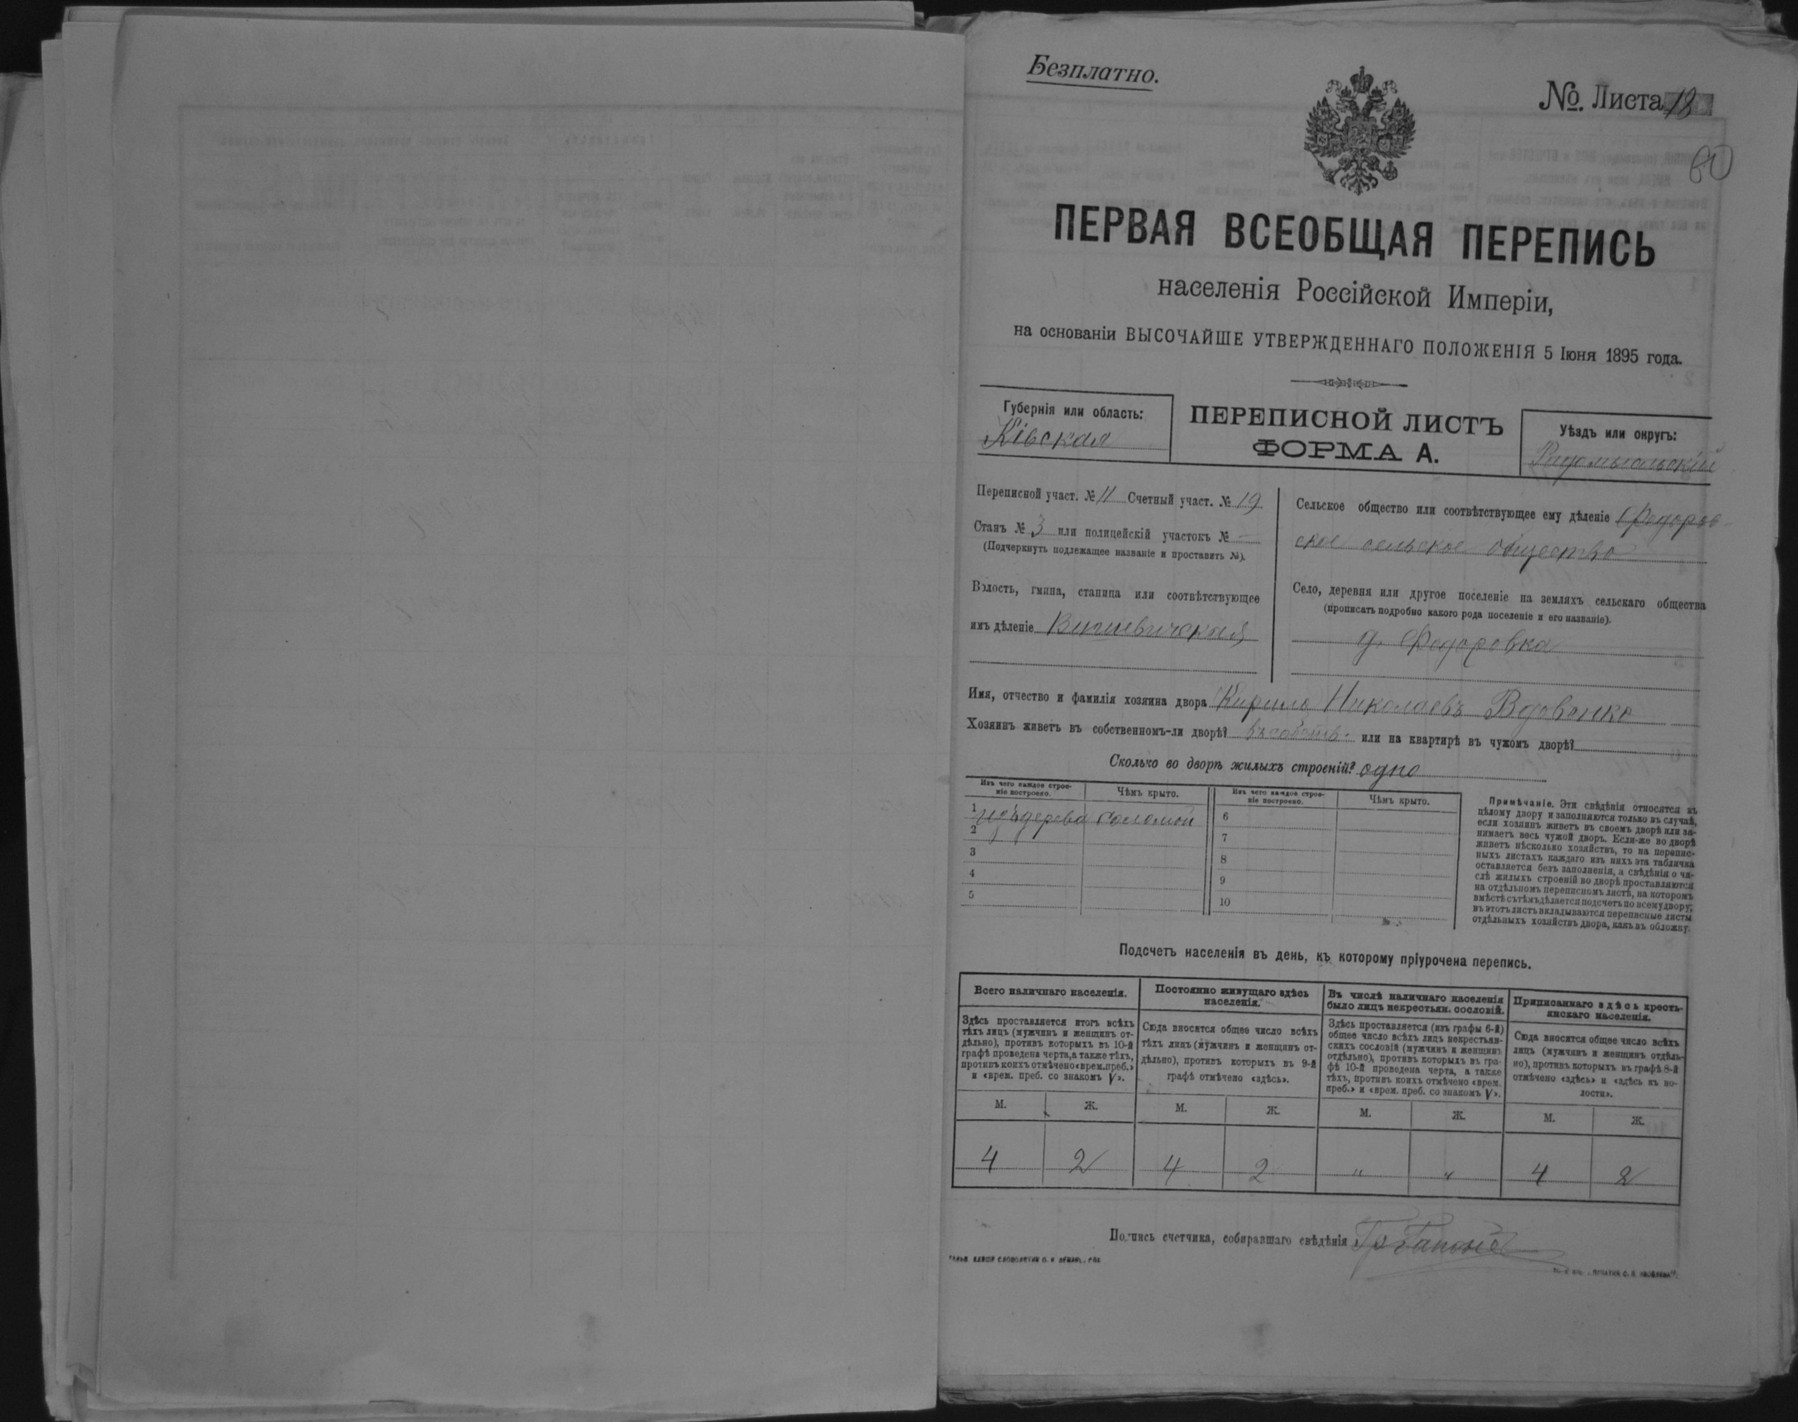 Безплатно.
№. Листа 18
60
ПЕРВАЯ ВСЕОБЩАЯ ПЕРЕПИСЬ
населенія Россійской Имперіи,
на основаніи ВЫСОЧАЙШЕ УТВЕРЖДЕННАГО ПОЛОЖЕНІЯ 5 Іюня 1895 года.
Губернія или область:
Кіевская
ПЕРЕПИСНОЙ ЛИСТЪ
ФОРМА А.
Уѣздъ или округъ:
Радомысльскій
Переписной участ. № 11 Счетный участ. № 19
Станъ № 3 или полицейскій участокъ № —
(Подчеркнуть подлежащее названіе и проставить №).
Волость, гмина, станица или соотвѣтствующее
имъ дѣленіе Вышевичская
Сельское общество или соотвѣтствующее ему дѣленіе Федоров-
ское сельское общество
Село, деревня или другое поселеніе на земляхъ сельскаго общества
(прописать подробно какого рода поселеніе и его названіе).
д. Федоровка
Имя, отчество и фамилія хозяина двора Кирило Николаевъ Вдовенко
Хозяинъ живетъ въ собственномъ-ли дворѣ? въ собств. или на квартирѣ въ чужомъ дворѣ?
Сколько во дворѣ жилыхъ строеній? одно
Изъ чего каждое строе-
ніе построено.
Чѣмъ крыто.
Изъ чего каждое строе-
ніе построено.
Чѣмъ крыто.
1 изъ дерева соломой
2
3
4
5
6
7
8
9
10
Примѣчаніе. Эти свѣдѣнія относятся къ
цѣлому двору и заполняются только въ случаѣ,
если хозяинъ живетъ въ своемъ дворѣ или за-
нимаетъ весь чужой дворъ. Если-же во дворѣ
живетъ нѣсколько хозяйствъ, то на перепис-
ныхъ листахъ каждаго изъ нихъ эта табличка
оставляется безъ заполненія, а свѣдѣнія о чи-
слѣ жилыхъ строеній во дворѣ проставляются
на отдѣльномъ переписномъ листѣ, на которомъ
вмѣстѣ съ тѣмъ дѣлается подсчетъ по всему двору;
въ этотъ листъ вкладываются переписные листы
отдѣльныхъ хозяйствъ двора, какъ въ обложку.
Подсчетъ населенія въ день, къ которому пріурочена перепись.
Всего наличнаго населенія.
Здѣсь проставляется итогъ всѣхъ
тѣхъ лицъ (мужчинъ и женщинъ от-
дѣльно), противъ которыхъ въ 10-й
графѣ проведена черта, а также тѣхъ,
противъ коихъ отмѣчено «врем. преб.»
и «врем. преб. со знакомъ V».
Постоянно живущаго здѣсь
населенія.
Сюда вносится общее число всѣхъ
тѣхъ лицъ (мужчинъ и женщинъ от-
дѣльно), противъ которыхъ въ 9-й
графѣ отмѣчено «здѣсь».
Въ числѣ наличнаго населенія
было лицъ некрестьян. сословій.
Здѣсь проставляется (изъ графы 6-й)
общее число всѣхъ лицъ некрестьян-
скихъ сословій (мужчинъ и женщинъ
отдѣльно), противъ которыхъ въ гра-
фѣ 10-й проведена черта, а также
тѣхъ, противъ коихъ отмѣчено «врем.
преб.» и «врем. преб. со знакомъ V».
Приписаннаго здѣсь кресть-
янскаго населенія.
Сюда вносится общее число всѣхъ
лицъ (мужчинъ и женщинъ отдѣль-
но), противъ которыхъ въ графѣ 8-й
отмѣчено «здѣсь» и «здѣсь къ во-
лости».
М. Ж. М. Ж. М. Ж. М. Ж.
4 2 4 2 " " 4 2
Подпись счетчика, собиравшаго свѣдѣнія